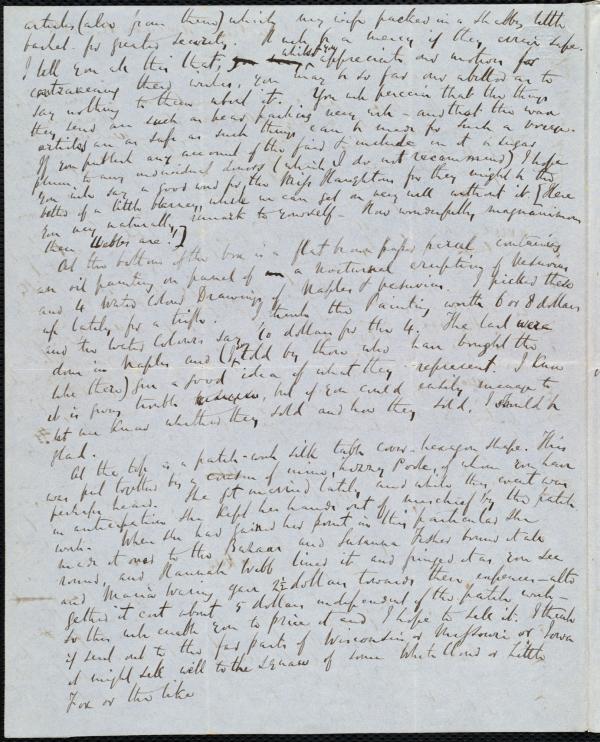 articles (also from them) which my wife packed in a shabby little
basket for greater security. It will be a mercy if they arrive safe.
I tell you all this that, whilst you appreciate our motives for
contravening their wishes, you may be so far our abettors as to
say nothing to them about it. You will perceive that the things
they send are such as bear packing very well – and that this was
articles are as safe as such things can be made for such a voyage.
If you publish any account of the fair & include in it a
given to any individual donors (which I do not recommend) I hope
you will say a good word for the Miss Haughtons for they might be the
better of a little blarney, while we can get on very well without it. [Here
you may naturally remark to yourself – How wonderfully magnanimous
these Webbs are!]
At the bottom of the box is a flat brown paper parcel containing
an oil painting on panel of a nocturnal eruption of Vesuvius
and 4 Water Colour Drawings of Naples & Vesuvius. I picked these
up lately for a trifle. I think the Painting worth 6 or 8 dollars
and the water colours say 10 dollars for the 4. The last were
done in Naples and (I'm told by those who have bought the
like there) give a good idea of what they represent. I know
it is giving trouble but if you could easily manage to
let me know whether they sold and how they sold, I should be
glad.
At the top is a patch-work silk table cover – hexagon shape. This
was put together by a cousin of mine, Lizzy Poole, of whom you have
perhaps heard. She got married lately, and while they went was
in anticipation she kept her hands out of mischief by the patch
work. When she had gained her point in this particular she
made it over to the Bazaar and Susanna Fisher bound it all
round, and Hannah Webb lined it and fringed it as you see
and Maria Waring gave 2½ dollars towards these expences – alto
gether it cost about 5 dollars independent of the patch work –
So this will enable you to price it and I hope to sell it. I think
if sent out to the far parts of Wisconsin or Missouri or Iowa
it might sell well to the squaw of some White Cloud or Little
Fox or the like